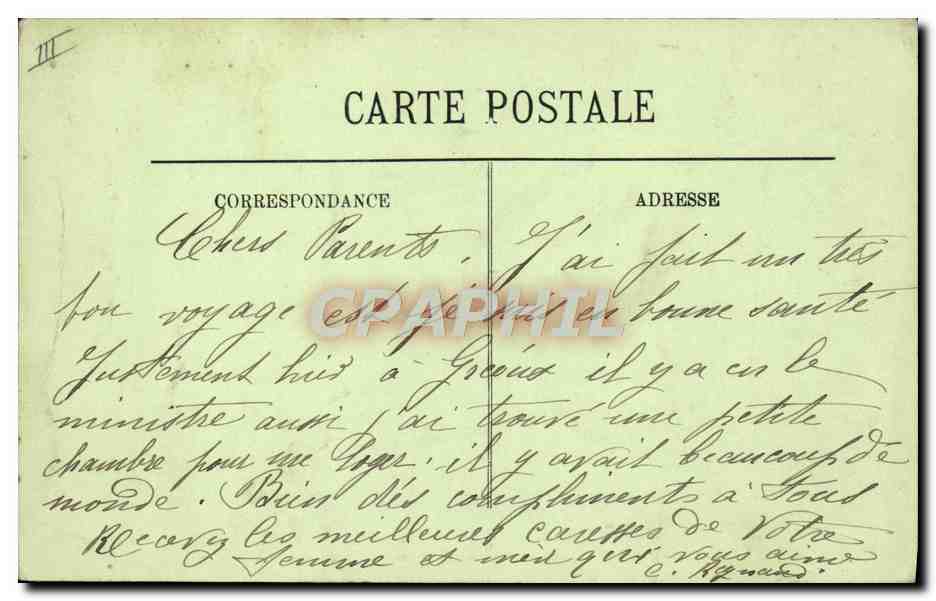 III
CARTE POSTALE
CORRESPONDANCE
ADRESSE
Chers Parents, J'ai fait un très
bon voyage est je suis en bonne santé
CPAPHIL
Justement hier à Gréoux il y a eu le
ministre aussi j'ai trouvé une petite
chambre pour me loger. il y avait beaucoup de
monde. Bien dés compliments à Tous
Recevez les meilleures caresses de Votre
femme et qui vous aime
C.